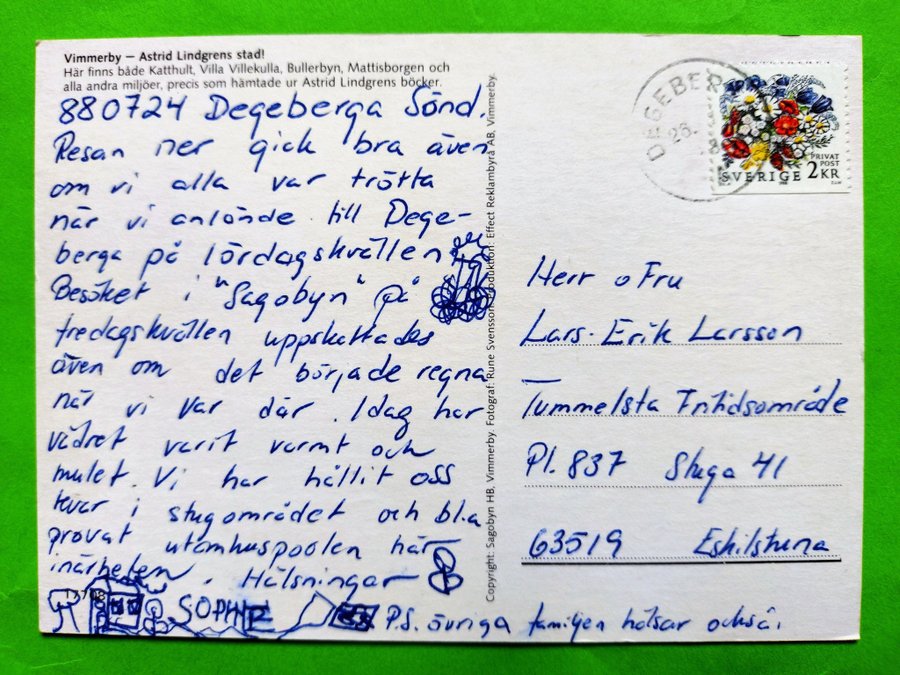 Vimmerby — Astrid Lindgrens stad!
Här finns både Katthult, Villa Villekulla, Bullerbyn, Mattisborgen och
alla andra miljöer, precis som hämtade ur Astrid Lindgrens böcker.
880724 Degeberga Sönd.
Resan ner gick bra även
om vi alla var trötta
när vi anlände till Dege-
berga på lördagskvällen.
Besöket i "Sagobyn" på
fredagskvällen uppskattades
även om det började regna
när vi var där. Idag har
vädret varit varmt och
mulet. Vi har hållit oss
kvar i stugområdet och bl.a
provat utomhuspoolen här
i närheten. Hälsningar
13708
SOPHIE
P.S. övriga familjen hälsar också.
Copyright: Sagobyn HB, Vimmerby. Fotograf: Rune Svensson. Produktion: Effect Reklambyrå AB, Vimmerby.
DEGEBER
26.
8
PRIVAT
POST
SVERIGE 2KR
Herr o Fru
Lars-Erik Larsson
Tummelsta Fritidsområde
Pl. 837 Stuga 41
63519 Eskilstuna